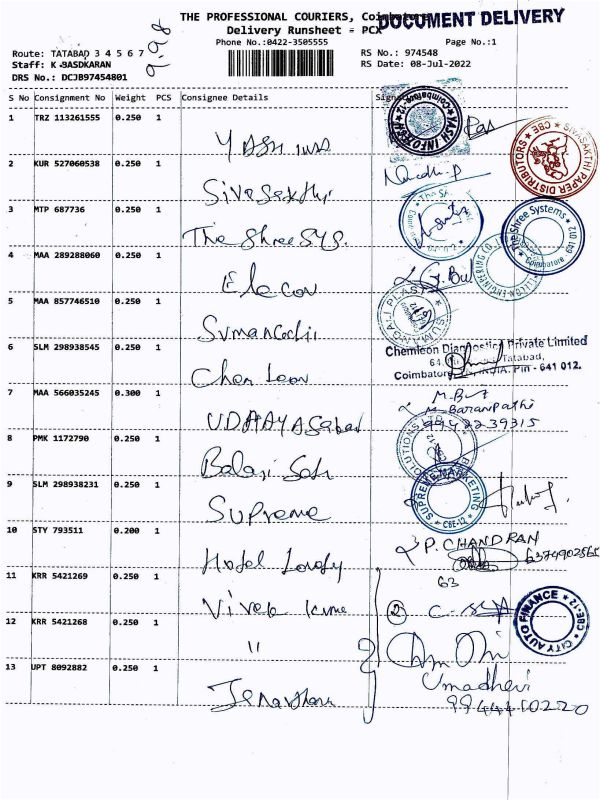 THE PROFESSIONAL COURIERS, Coimbatore
DOCUMENT DELIVERY
Delivery Runsheet = PCX
Phone No.:0422-3505555
Page No.:1
Route: TATABAD 3 4 5 6 7
9.98
Staff: K.BASDKARAN
DRS No.: DCJB97454801
RS No.: 974548
RS Date: 08-Jul-2022
S No Consignment No Weight PCS Consignee Details
1 TRZ 113261555 0.250 1
YASH INFO
2 KUR 527060538 0.250 1
Siva Sakthi
3 MTP 687736 0.250 1
The Shree Sys.
4 MAA 289288060 0.250 1
Elecon
5 MAA 857746510 0.250 1
6 SLM 298938545 0.250 1
7 MAA 566035245 0.300 1
8 PMK 1172790 0.250 1
Balaji
9 SLM 298938231 0.250 1
Supreme
10 STY 793511 0.200 1
Hotel
11 KRR 5421269 0.250 1
Vivek
12 KRR 5421268 0.250 1
"
13 UPT 8092882 0.250 1
SIVASAKTHI PAPER DISTRIBUTORS * CBE *
The Shree Systems
Coimbatore
Chemicon Diagnostics Private Limited
Tatabad,
Coimbatore INDIA. Pin - 641 012.
M. Baranpathi
99422 39315
SUPREME MARKETING
* CBE-12 *
P. CHANDRAN
6374902565
63
2
CITY AUTO FINANCE * CBE-12 *
Umadhevi